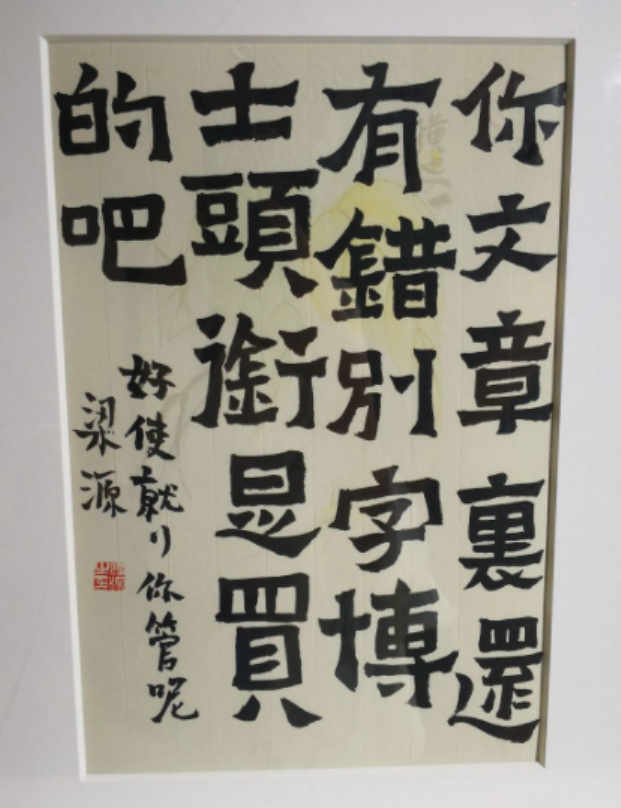 你文章裏還
有錯別字博
士頭銜是買
的吧
好使就行你管呢
梁源